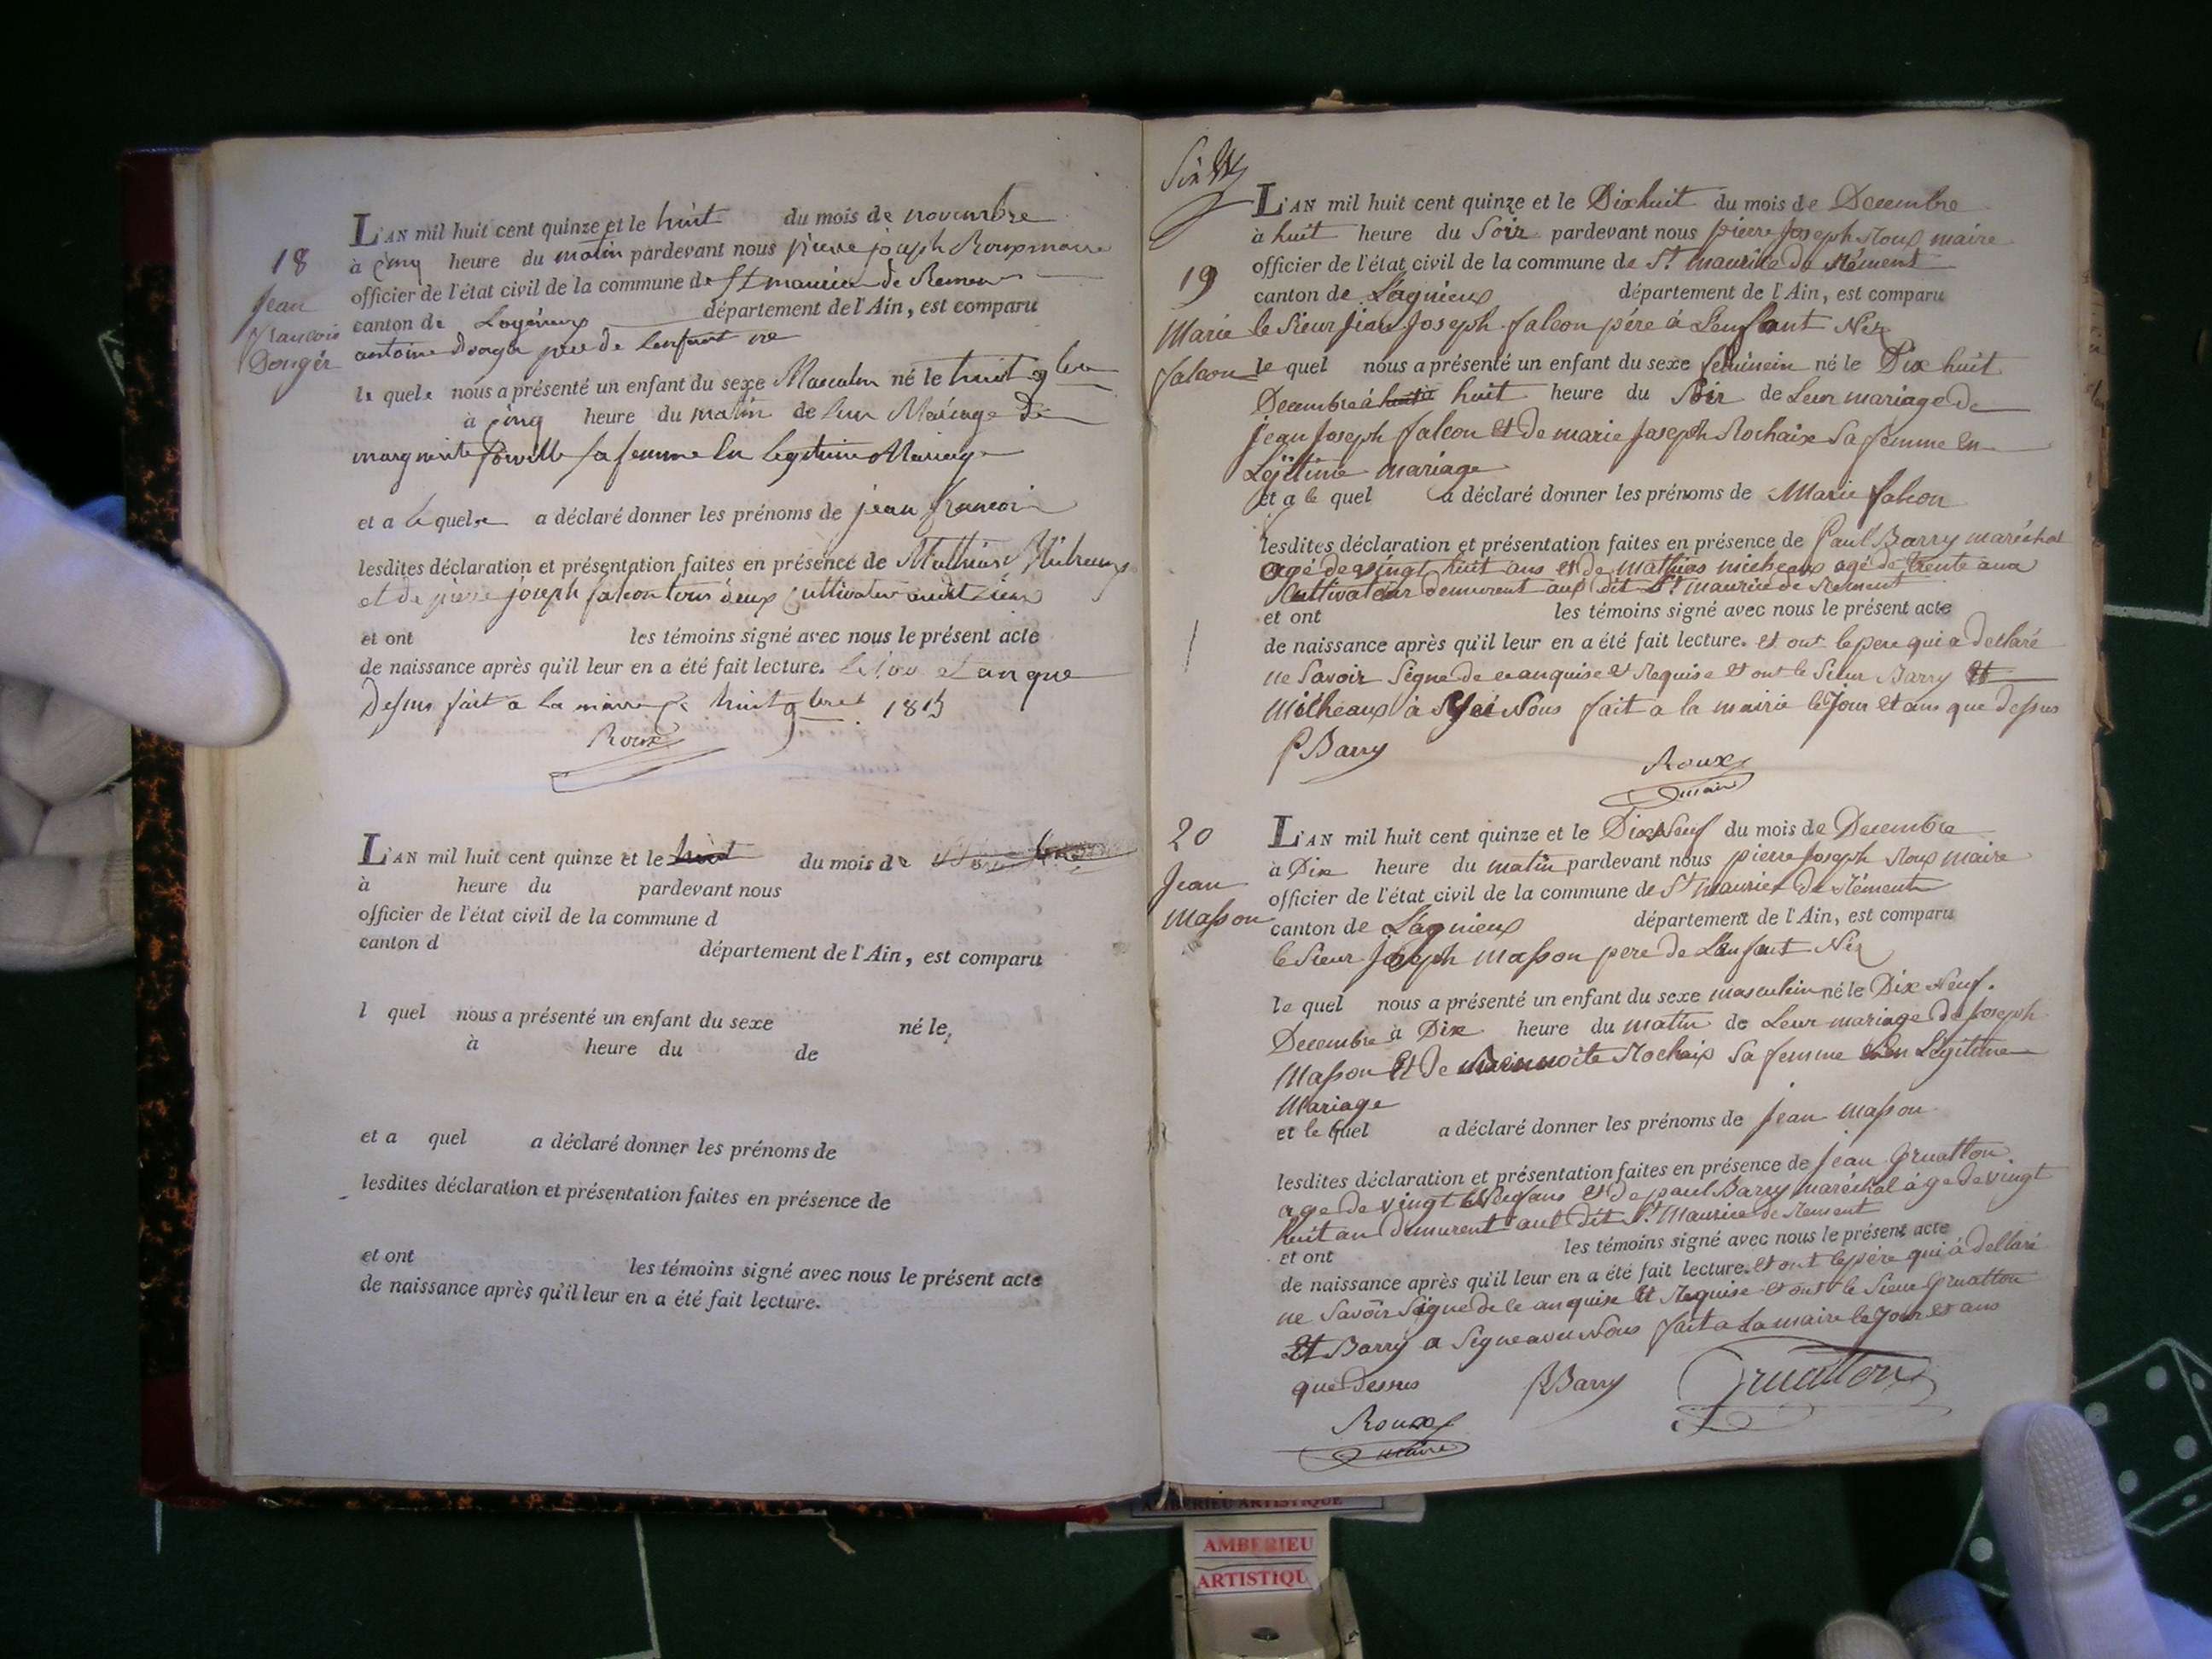 18
Jean
francois
Dougér
L'AN mil huit cent quinze et le huit du mois de novembre
à cinq heure du matin pardevant nous pierre joseph Roux maire
officier de l'état civil de la commune de St maurice de Remens
canton de Lagnieux département de l'Ain, est comparu
antoine père de lenfant né
le quel nous a présenté un enfant du sexe Masculin né le huit 9bre
à cinq heure du matin de leur Mariage De
marguerite sa femme En Legitime Mariage
et a le quel a déclaré donner les prénoms de jean francois
lesdites déclaration et présentation faites en présence de Mathias
et de pierre joseph falcon tous deux Cultivateur
et ont les témoins signé avec nous le présent acte
de naissance après qu'il leur en a été fait lecture. et an que
Dessus fait a la mairie huit 9bre 1815
Roux
L'AN mil huit cent quinze et le huit du mois de
à heure du pardevant nous
officier de l'état civil de la commune d
canton d département de l'Ain, est comparu
l quel nous a présenté un enfant du sexe né le,
à heure du de
et a quel a déclaré donner les prénoms de
lesdites déclaration et présentation faites en présence de
et ont les témoins signé avec nous le présent acte
de naissance après qu'il leur en a été fait lecture.
19
Marie
falcon
L'AN mil huit cent quinze et le Dixhuit du mois de Decembre
à huit heure du Soir pardevant nous pierre Joseph Roux maire
officier de l'état civil de la commune de St maurice de Rément
canton de Lagnieux département de l'Ain, est comparu
le Sieur Jean Joseph falcon pére à Lenfant Néz
le quel nous a présenté un enfant du sexe feminein né le Dix huit
Decembre à huit heure du Soir de Leur mariage de
Jean Joseph falcon Et De marie Joseph Rochaix Sa femme En
Legitime mariage
et a le quel a déclaré donner les prénoms de Marie falcon
lesdites déclaration et présentation faites en présence de Paul Barry maréchal
agé de vingt huit ans et de mathias micheaux agé de trente ans
Cultivateur demurent aux dit St maurice de Rement
et ont les témoins signé avec nous le présent acte
de naissance après qu'il leur en a été fait lecture. et ont le pere qui a declaré
ne Savoir Signe de ce anquise et Requise et ont le Sieur Barry et
Micheaux à Nous fait a la mairie le Jour et ans que dessus
P Barry
Roux
maire
20
Jean
Masson
L'AN mil huit cent quinze et le Dix Neuf du mois de Decembre
à Dix heure du matin pardevant nous pierre Joseph Roux maire
officier de l'état civil de la commune de St Maurice De Rément
canton de Lagnieux département de l'Ain, est comparu
le Sieur Joseph Masson pere de Lenfant Néz
le quel nous a présenté un enfant du sexe masculin né le Dix Neuf.
Decembre à Dix heure du matin de Leur mariage de Joseph
Masson Et De Rochaix Sa femme En Légitime
Mariage
et le quel a déclaré donner les prénoms de Jean Masson
lesdites déclaration et présentation faites en présence de Jean Gruatton
age de vingt ans et de paul Barry maréchal àge de vingt
huit an demurent aux dit St Maurice de Rement
et ont les témoins signé avec nous le présent acte
de naissance après qu'il leur en a été fait lecture. et ont le pére qui à dellaré
ne Savoir Signe de le anquise Et Requise et ont le Sieur Gruatton
Et Barry a Signe avec Nous fait a La maire le Jour et ans
que Dessus
P Barry
Gruatton
Roux
maire
AMBERIEU ARTISTIQUE
AMBERIEU
ARTISTIQU